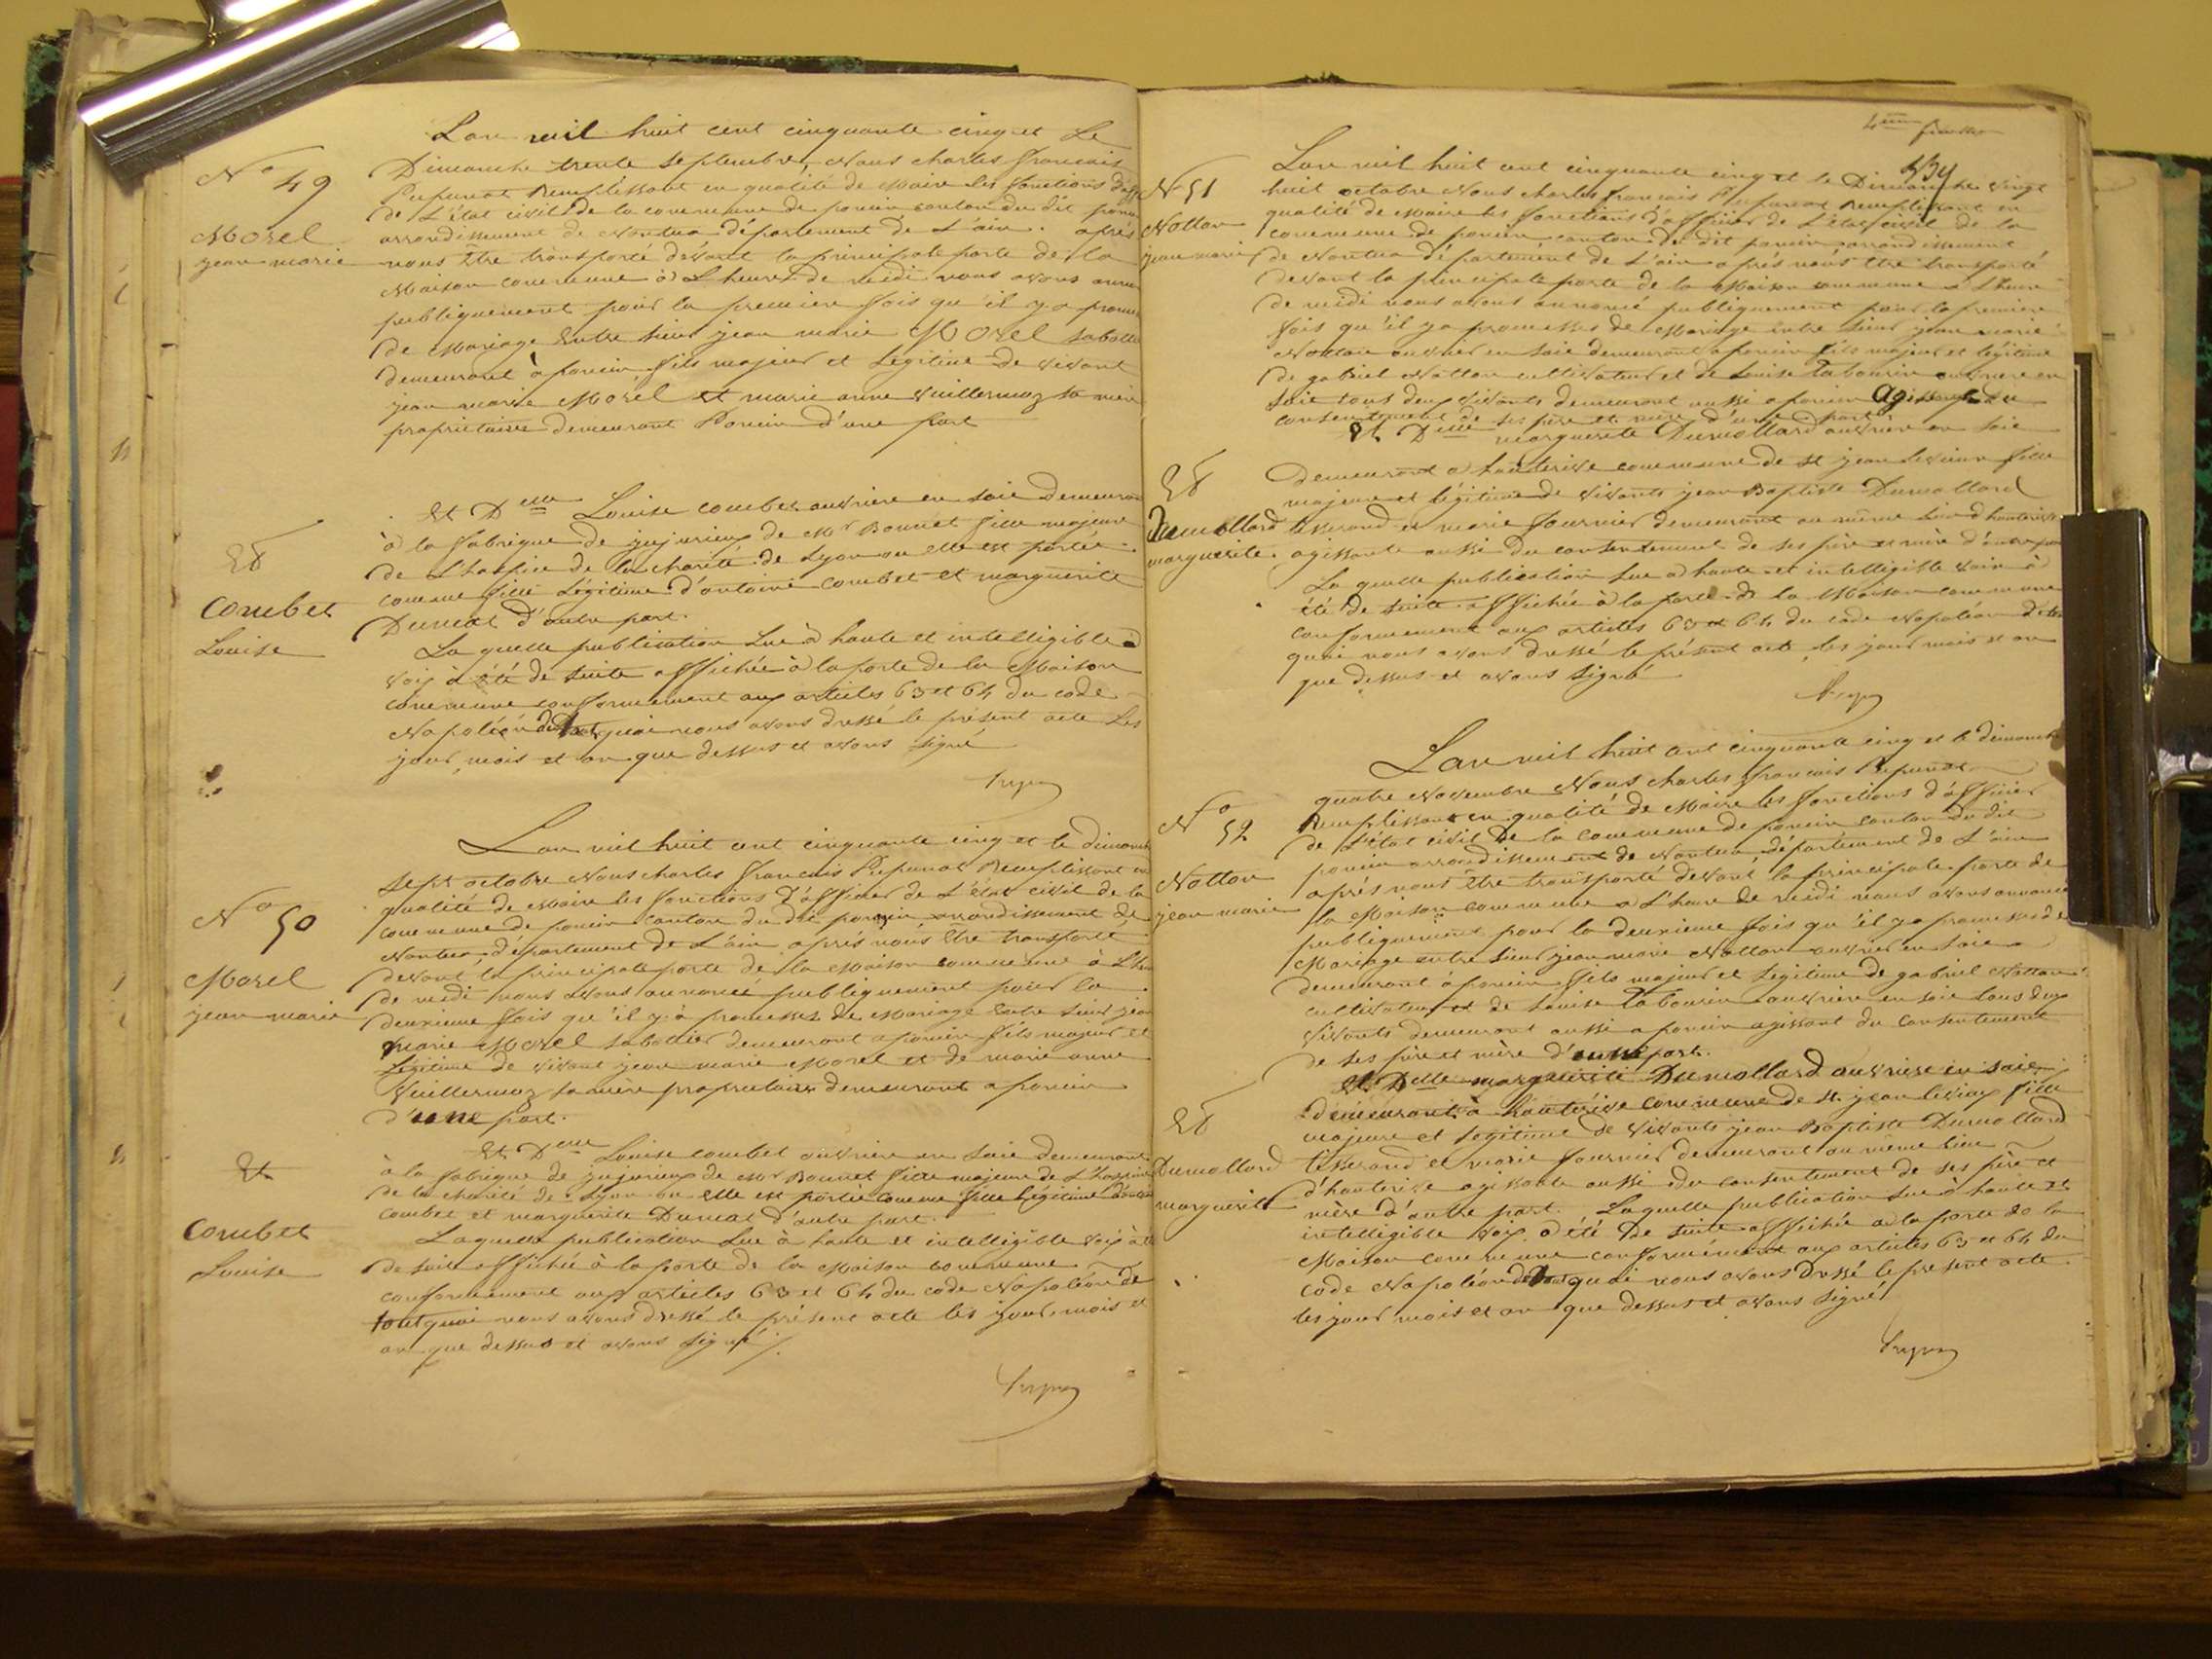 N° 49
Morel
jean marie
Et
Combet
Louise
Lan mil huit cent cinquante cinq et Le
Dimanche trente Septembre, Nous charles francois
Pupunat Remplissant en qualité de Maire les fonctions d'off
de L'état civil de la commune de poncin canton du dit poncin
arrondissement de Nantua département de L'ain. après
nous être transporté dévant la principale porte de la
Maison commune à L'heure de midi nous avons annon
publiquement pour la premiere fois qu'il y a prome
de Mariage Entre sieur jean marie Morel sabotie
demeurant à poncin, fils majeur et Légitime de vivant
jean marie Morel et marie anne Vuillermoz sa mère
propriétaires demeurant Poncin d'une part
Et Delle Louise combet ouvriere en soie demeuran
à la fabrique de jujurieux de Mr Bonnet fille majeure
de L'hospice de la charité de Lyon ou elle est portée
comme fille Légitime d'antoine Combet et marguerite
Dumat d'autre part.
La quelle publication Lue à haute et intelligible
voix à été de suite affichée à la porte de la Maison
commune conformement aux articles 63 et 64 du code
Napoléon de tout quoi nous avons dressé le présent acte Les
jour, mois et an que dessus et avons signé
N° 50
Morel
jean marie
Et
Combet
Louise
Lan mil huit cent cinquante cinq et le dimanch
sept octobre Nous charles francois Pupunat Remplissant en
qualité de Maire les fonctions d'officier de L'état civil de la
commune de poncin canton du dit poncin arrondissement de
Nantua, département de L'ain après nous être transporté
devant la principale porte de la Maison commune à L'heu
de midi nous avons annoncé publiquement pour la
deuxieme fois qu'il y à promesses de Mariage Entre sieur jean
marie Morel sabottier demeurant a poncin fils majeur et
Légitime de vivant jean marie Morel et de marie anne
Vuillermoz sa mère propriétaires demeurant a poncin
d'une part.
Et Delle Louise combet ouvriere en soie demeurant
à la fabrique de jujurieux de Mr Bonnet fille majeure de L'hospice
de la charité de Lyon ou elle est portée comme fille Légitime d'antoine
Combet et marguerite Dumat d'autre part.
Laquelle publication Lue à haute et intelligible voix à été
de suite affichée à la porte de la Maison commune
conformement aux articles 63 et 64 du code Napoléon de
tout quoi nous avons dressé le présent acte les jour, mois et
an que dessus et avons signé /.
4eme feuillet
N° 51
Notton
jean marie
Et
Dumollard
marguerite.
Lan mil huit cent cinquante cinq et le Dimanche vingt
huit octobre Nous charles francois Pupunat Remplissant en
qualité de Maire les fonctions d'officier de L'état civil de la
commune de poncin, canton du dit poncin arrondissement
de Nantua département de L'ain après nous être transporté
devant la principale porte de la Maison commune à L'heure
de midi nous avons annoncé publiquement pour la premiere
fois qu'il y a promesses de Mariage entre sieur jean marie
Notton ouvrier en soie demeurant a poncin fils majeur et légitime
de gabriel Notton cultivateur et de Louise tabourin ouvriere en
soie tous deux vivants demeurant aussi a poncin agissant du
consentement de ses père et mère d'une part.
Et Delle marguerite Dumollard ouvriere en soie
Demeurant à hauterive commune de st jean levieux fille
majeure et légitime de vivants jean Baptiste Dumollard
tisserand et marie fournier demeurant au même lieu d'hauterive
agissante aussi du consentement de ses père et mère d'autre part
La quelle publication Lue à haute et intelligible voix à
été de suite affichée à la porte de la Maison commune
conformement aux articles 63 et 64 du code Napoléon de tout
quoi nous avons dressé le présent acte, les jour mois et an
que dessus et avons signé
N° 52
Notton
jean marie
Et
Dumollard
marguerite
Lan mil huit cent cinquante cinq et le dimanche
quatre Novembre Nous charles francois Pupunat
Remplissant en qualité de Maire les fonctions d'officier
de L'état civil de la commune de poncin canton du dit
poncin arrondissement de Nantua département de L'ain
après nous être transporté devant la principale porte de
la Maison commune à L'heure de midi nous avons annoncé
publiquement pour la deuxieme fois qu'il y a promesses de
Mariage entre sieur jean marie Notton ouvrier en soie
demeurant à poncin fils majeur et Légitime de gabriel Notton
cultivateur et de Louise tabourin ouvrière en soie tous deux
vivants demeurant aussi a poncin agissant du consentement
de ses père et mère d'une part.
Et Delle marguerite Dumollard ouvriere en soie
demeurant à hauterive commune de st jean levieux fille
majeure et Légitime de vivants jean Baptiste Dumollard
tisserand et marie fournier demeurant au même lieu
d'hauterive agissante aussi du consentement de ses père et
mère d'autre part. Laquelle publication Lue à haute et
intelligible voix à été de suite affichée à la porte de la
Maison commune conformément aux articles 63 et 64 du
code Napoléon de tout quoi nous avons dressé le present acte
les jour mois et an que dessus et avons signé